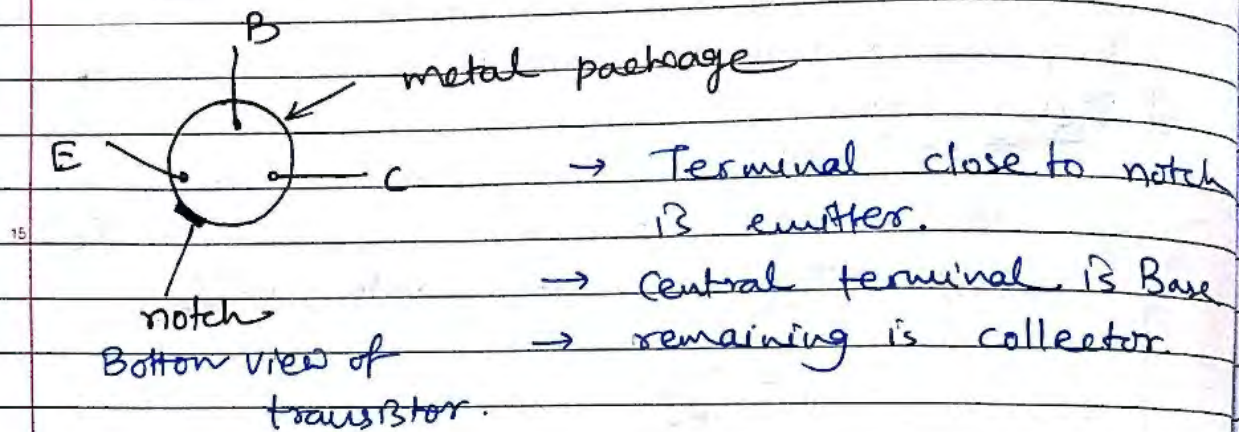 B
metal package
E
C
→ Terminal close to notch
is emitter.
15
→ Central terminal is Base
notch
→ remaining is collector
Bottom view of
transistor.